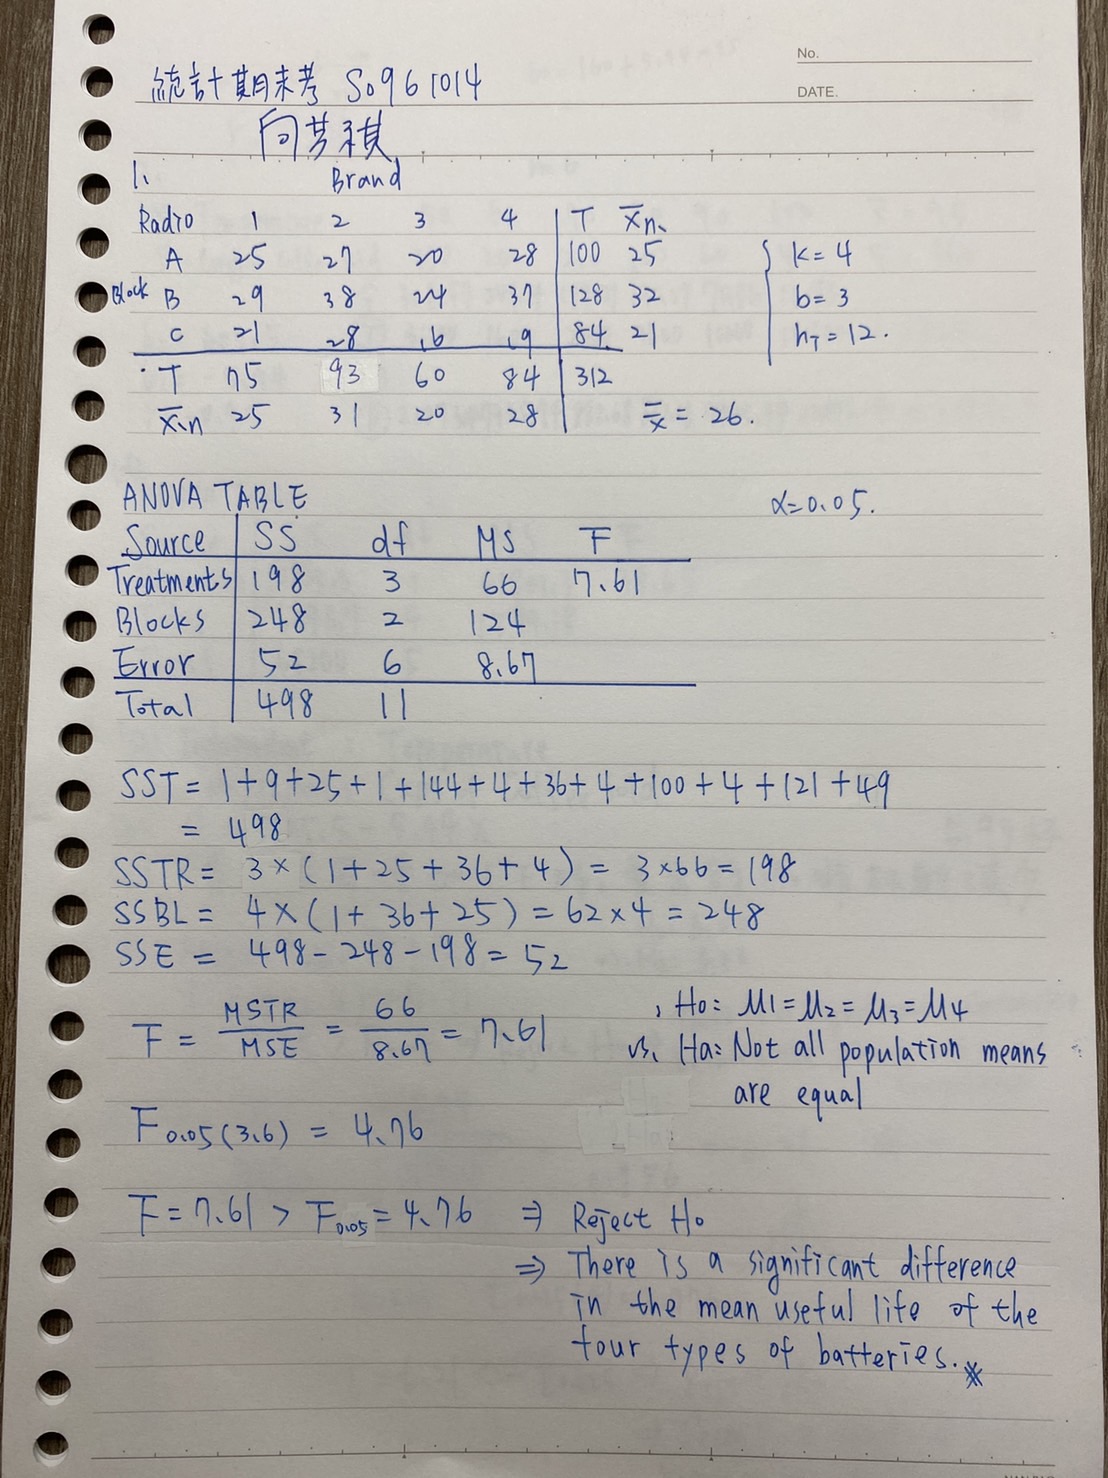 No.
統計期末考 S0961014
DATE.
向芳祺
1. Brand
Radio 1 2 3 4 T x̄n.
A 25 27 20 28 100 25 k=4
Block B 29 38 24 37 128 32 b=3
C 21 28 16 19 84 21 nT=12.
T 75 93 60 84 312
x̄.n 25 31 20 28 x̿=26.
ANOVA TABLE α=0.05.
Source SS df MS F
Treatments 198 3 66 7.61
Blocks 248 2 124
Error 52 6 8.67
Total 498 11
SST= 1+9+25+1+144+4+36+4+100+4+121+49
= 498
SSTR= 3×(1+25+36+4)= 3×66=198
SSBL= 4×(1+36+25)=62×4=248
SSE= 498-248-198=52
F= MSTR/MSE = 66/8.67 = 7.61 , Ho: μ1=μ2=μ3=μ4
vs. Ha: Not all population means
are equal
F0.05(3.6) = 4.76
F=7.61 > F0.05=4.76 ⇒ Reject Ho
⇒ There is a significant difference
in the mean useful life of the
four types of batteries.※